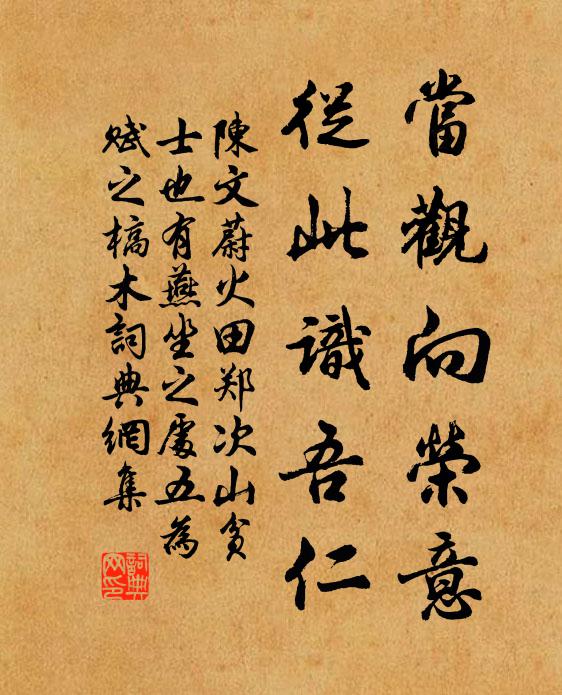 當觀向榮意
從此識吾仁
陳文蔚火田郑次山貧
士也有燕坐之處五為
赋之槁木詞典網集
詞典网印